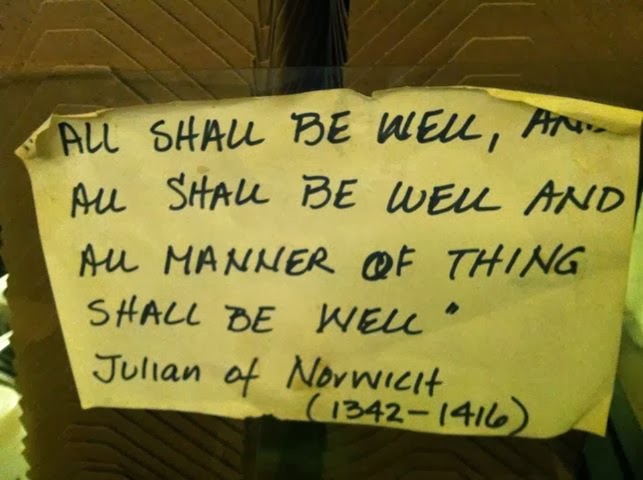 ALL SHALL BE WELL, AND
ALL SHALL BE WELL AND
ALL MANNER OF THING
SHALL BE WELL"
Julian of Norwich
(1342-1416)